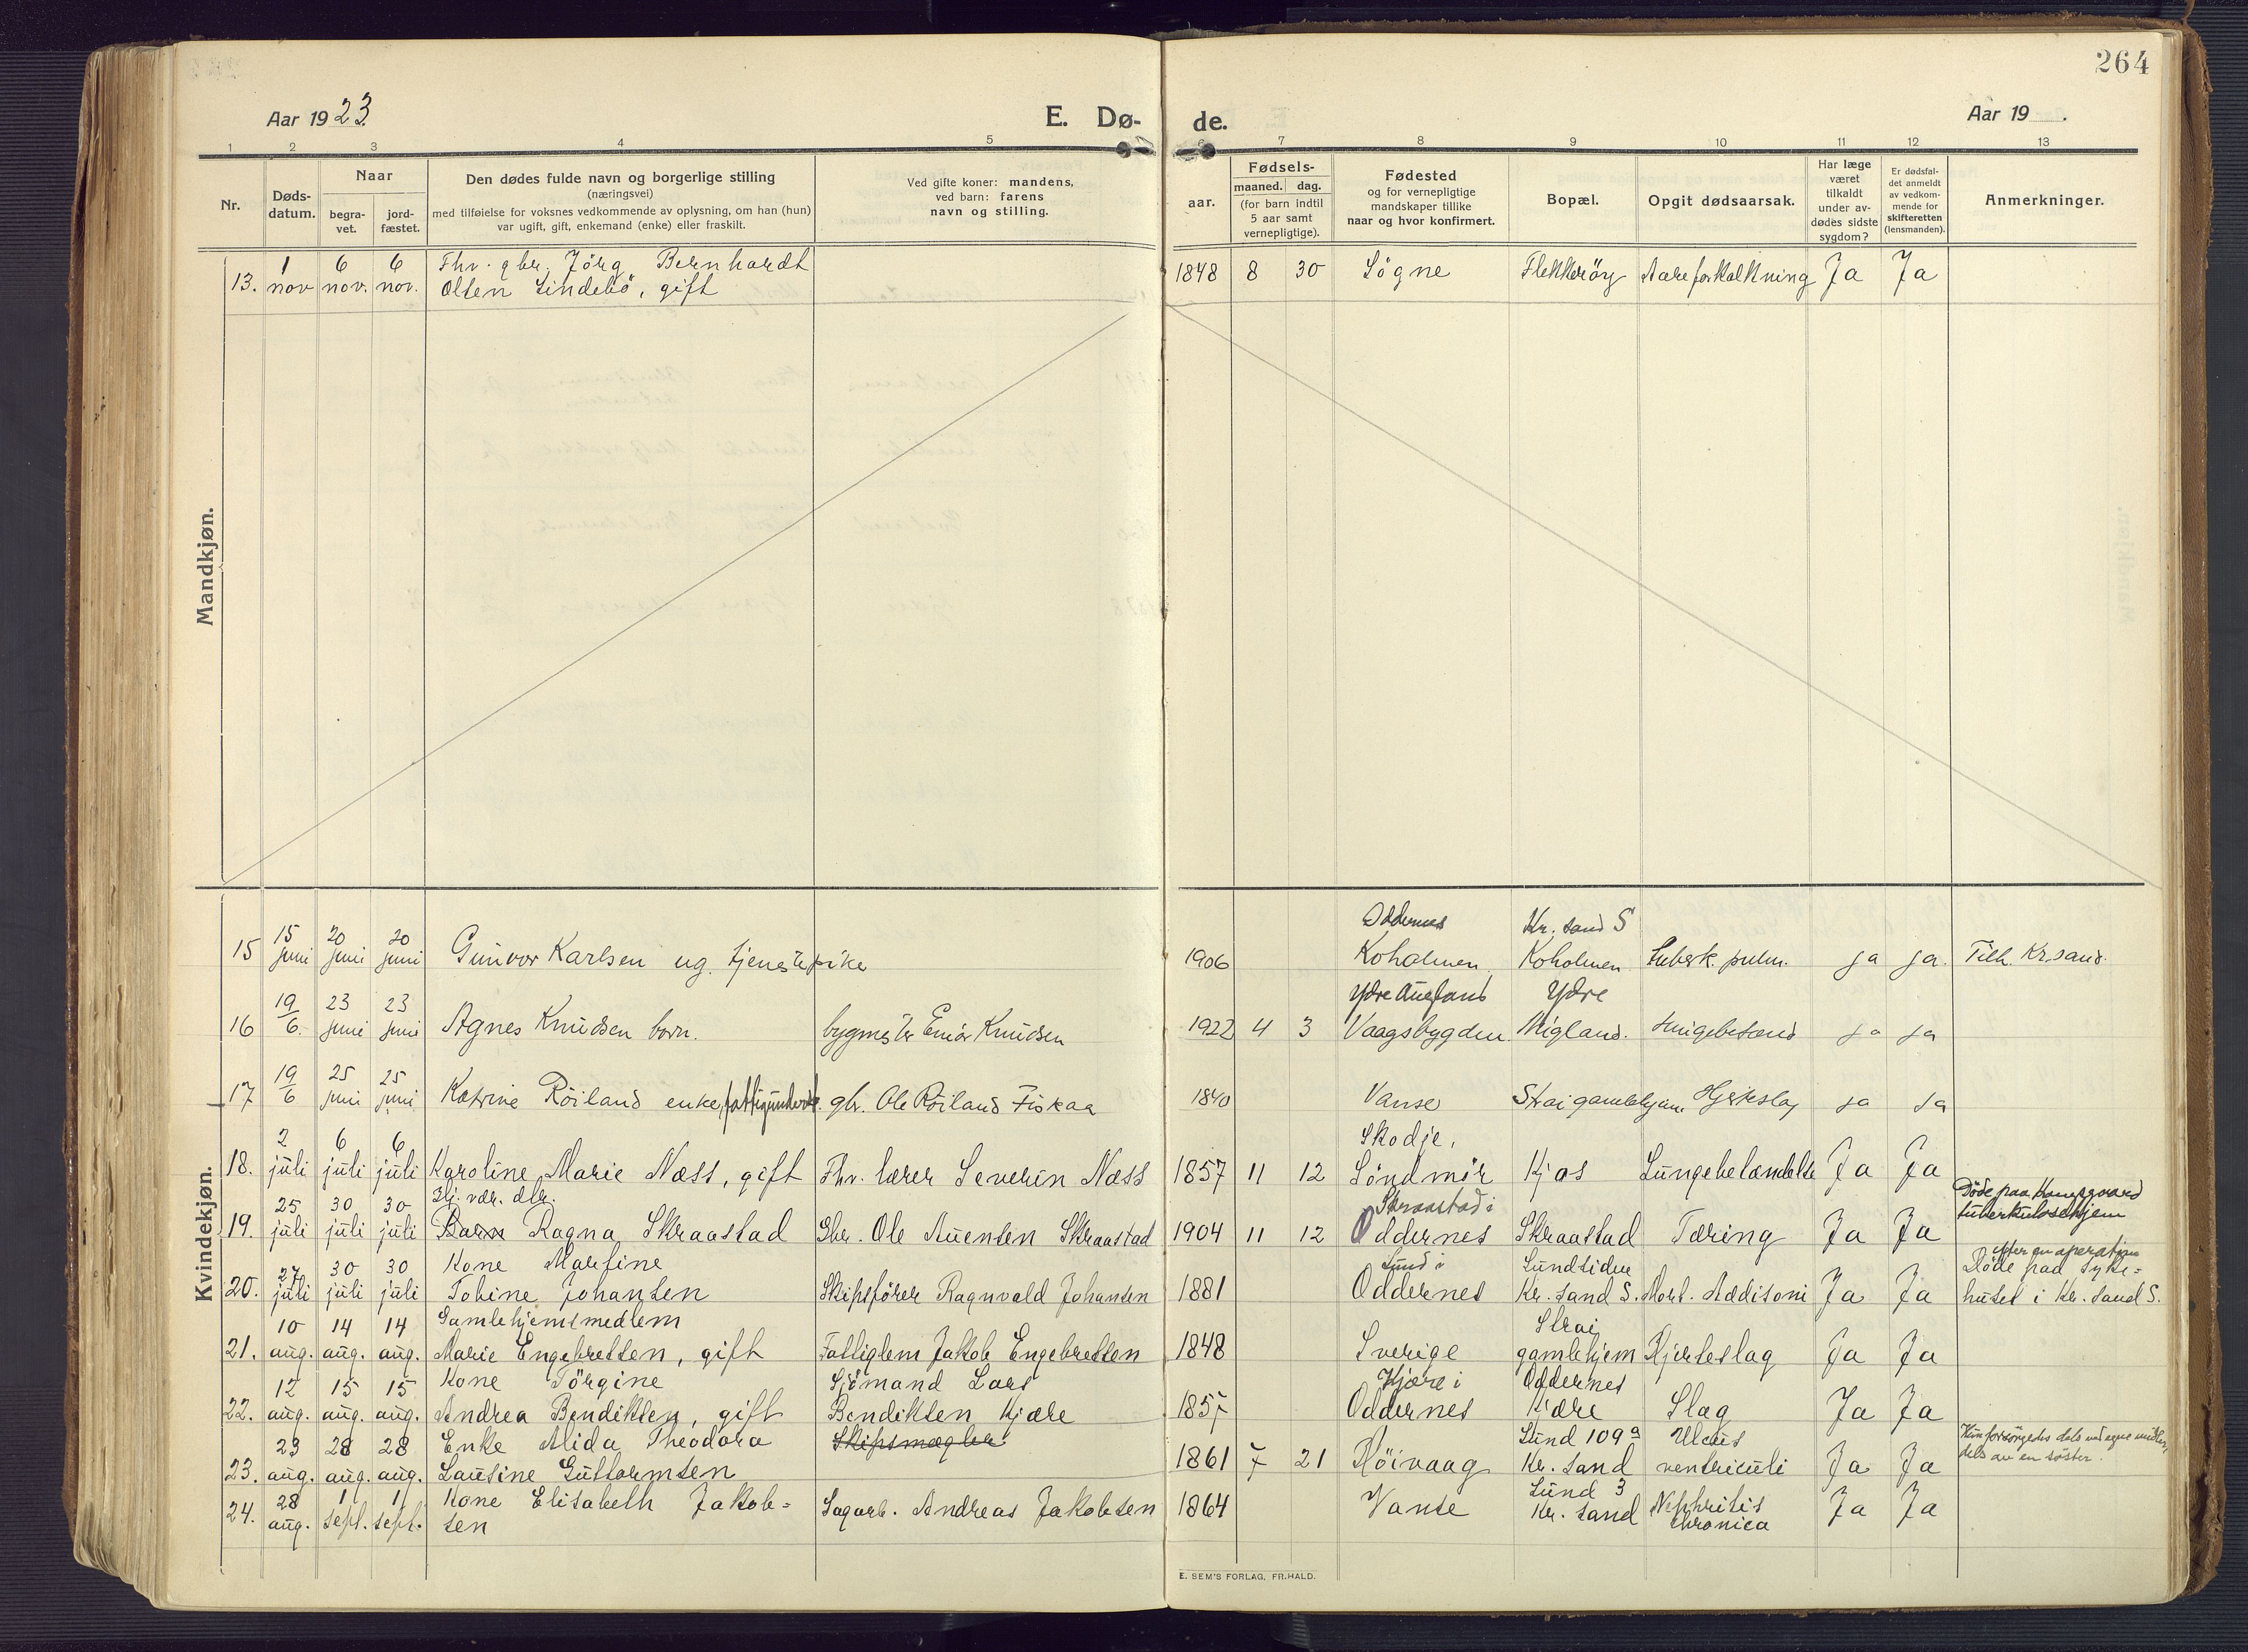 264
Aar 1923.
E. Dø-
de.
Aar 19 .
1 2 3 4 5 6 7 8 9 10 11 12 13
Nr.
Døds-
datum.
Naar
begra-
vet.
jord-
fæstet.
Den dødes fulde navn og borgerlige stilling
(næringsvei)
med tilføielse for voksnes vedkommende av oplysning, om han (hun)
var ugift, gift, enkemand (enke) eller fraskilt.
Ved gifte koner: mandens,
ved barn: farens
navn og stilling.
Fødsels-
aar.
maaned. dag.
(for barn indtil
5 aar samt
vernepligtige).
Fødested
og for vernepligtige
mandskaper tillike
naar og hvor konfirmert.
Bopæl.
Opgit dødsaarsak.
Har læge
været
tilkaldt
under av-
dødes sidste
sygdom?
Er dødsfal-
det anmeldt
av vedkom-
mende for
skifteretten
(lensmanden).
Anmerkninger.
Mandkjøn.
1 6 6 Fhv. gbr. Jörg Bernhardt
13. nov nov. nov. Olsen Lindebö, gift
1848 8 30 Sögne Flekkeröy Aareforkalkning Ja Ja
Kvindekjøn.
15 20 20 Oddernes Kr. sand S
15 juni juni juni Gunvor Karlsen ug. tjenestepike 1906 Koholmen Koholmen Tuberk. pulm. ja ja. Tilh. Kr.sand.
19 23 23 Ydre Ydre
16 6. juni juni Agnes Knudsen barn. bygmester Knudsen 1922 4 3 Vaagsbygden ja ja
19 25 25
17 6 juni juni Katrine Röiland enke, gbr. Ole Röiland Fiskaa 1840 Vanse Strai gamlehjem ja ja
2 6 6 Skodje,
18. juli juli juli Karoline Marie Næss, gift Fhv. lærer Severin Næss 1857 11 12 Söndmör Kjos Lungebetændelse Ja Ja
25 30 30 Skraastad i Döde paa
tuberkulosehjem
19. juli juli juli Barn Ragna Skraastad Gbr. Ole Auensen Skraastad 1904 11 12 Oddernes Skraastad Tæring Ja Ja
27 30 30 Kone Martine Lund i Lundsiden efter en operation
Döde paa Syke=
20. juli juli juli Tobine Johansen Skipsförer Ragnvald Johansen 1881 Oddernes Kr. sand S. Morb. Addisoni Ja Ja huset i Kr. sand S.
10 14 14 Gamlehjemsmedlem Strai
21. aug. aug. aug. Marie Engebretsen, gift Fattiglem Jakob Engebretsen 1848 Sverige gamlehjem Hjerteslag Ja Ja
12 15 15 Kone Törgine Sjömand Lars Kjære i Oddernes
22. aug. aug. aug. Andrea Bendiksen, gift Bendiksen Kjære 1857 Oddernes Kjære Slag Ja Ja
23 28 28 Enke Alida Theodora Skipsmægler Lund 109a Ulcus
23. aug. aug. aug. Laurine Guttormsen 1861 7 21 Höivaag Kr. sand ventriculi Ja Ja
Hun forsörgedes dels ved egne midler,
dels av en söster.
28 1 1 Kone Elisabeth Jakob= Lund 3 Nephritis
24. aug. sept. sept. sen Sagarb. Andreas Jakobsen 1864 Vanse Kr. sand chronica Ja Ja
E. SEM'S FORLAG, FR.HALD.